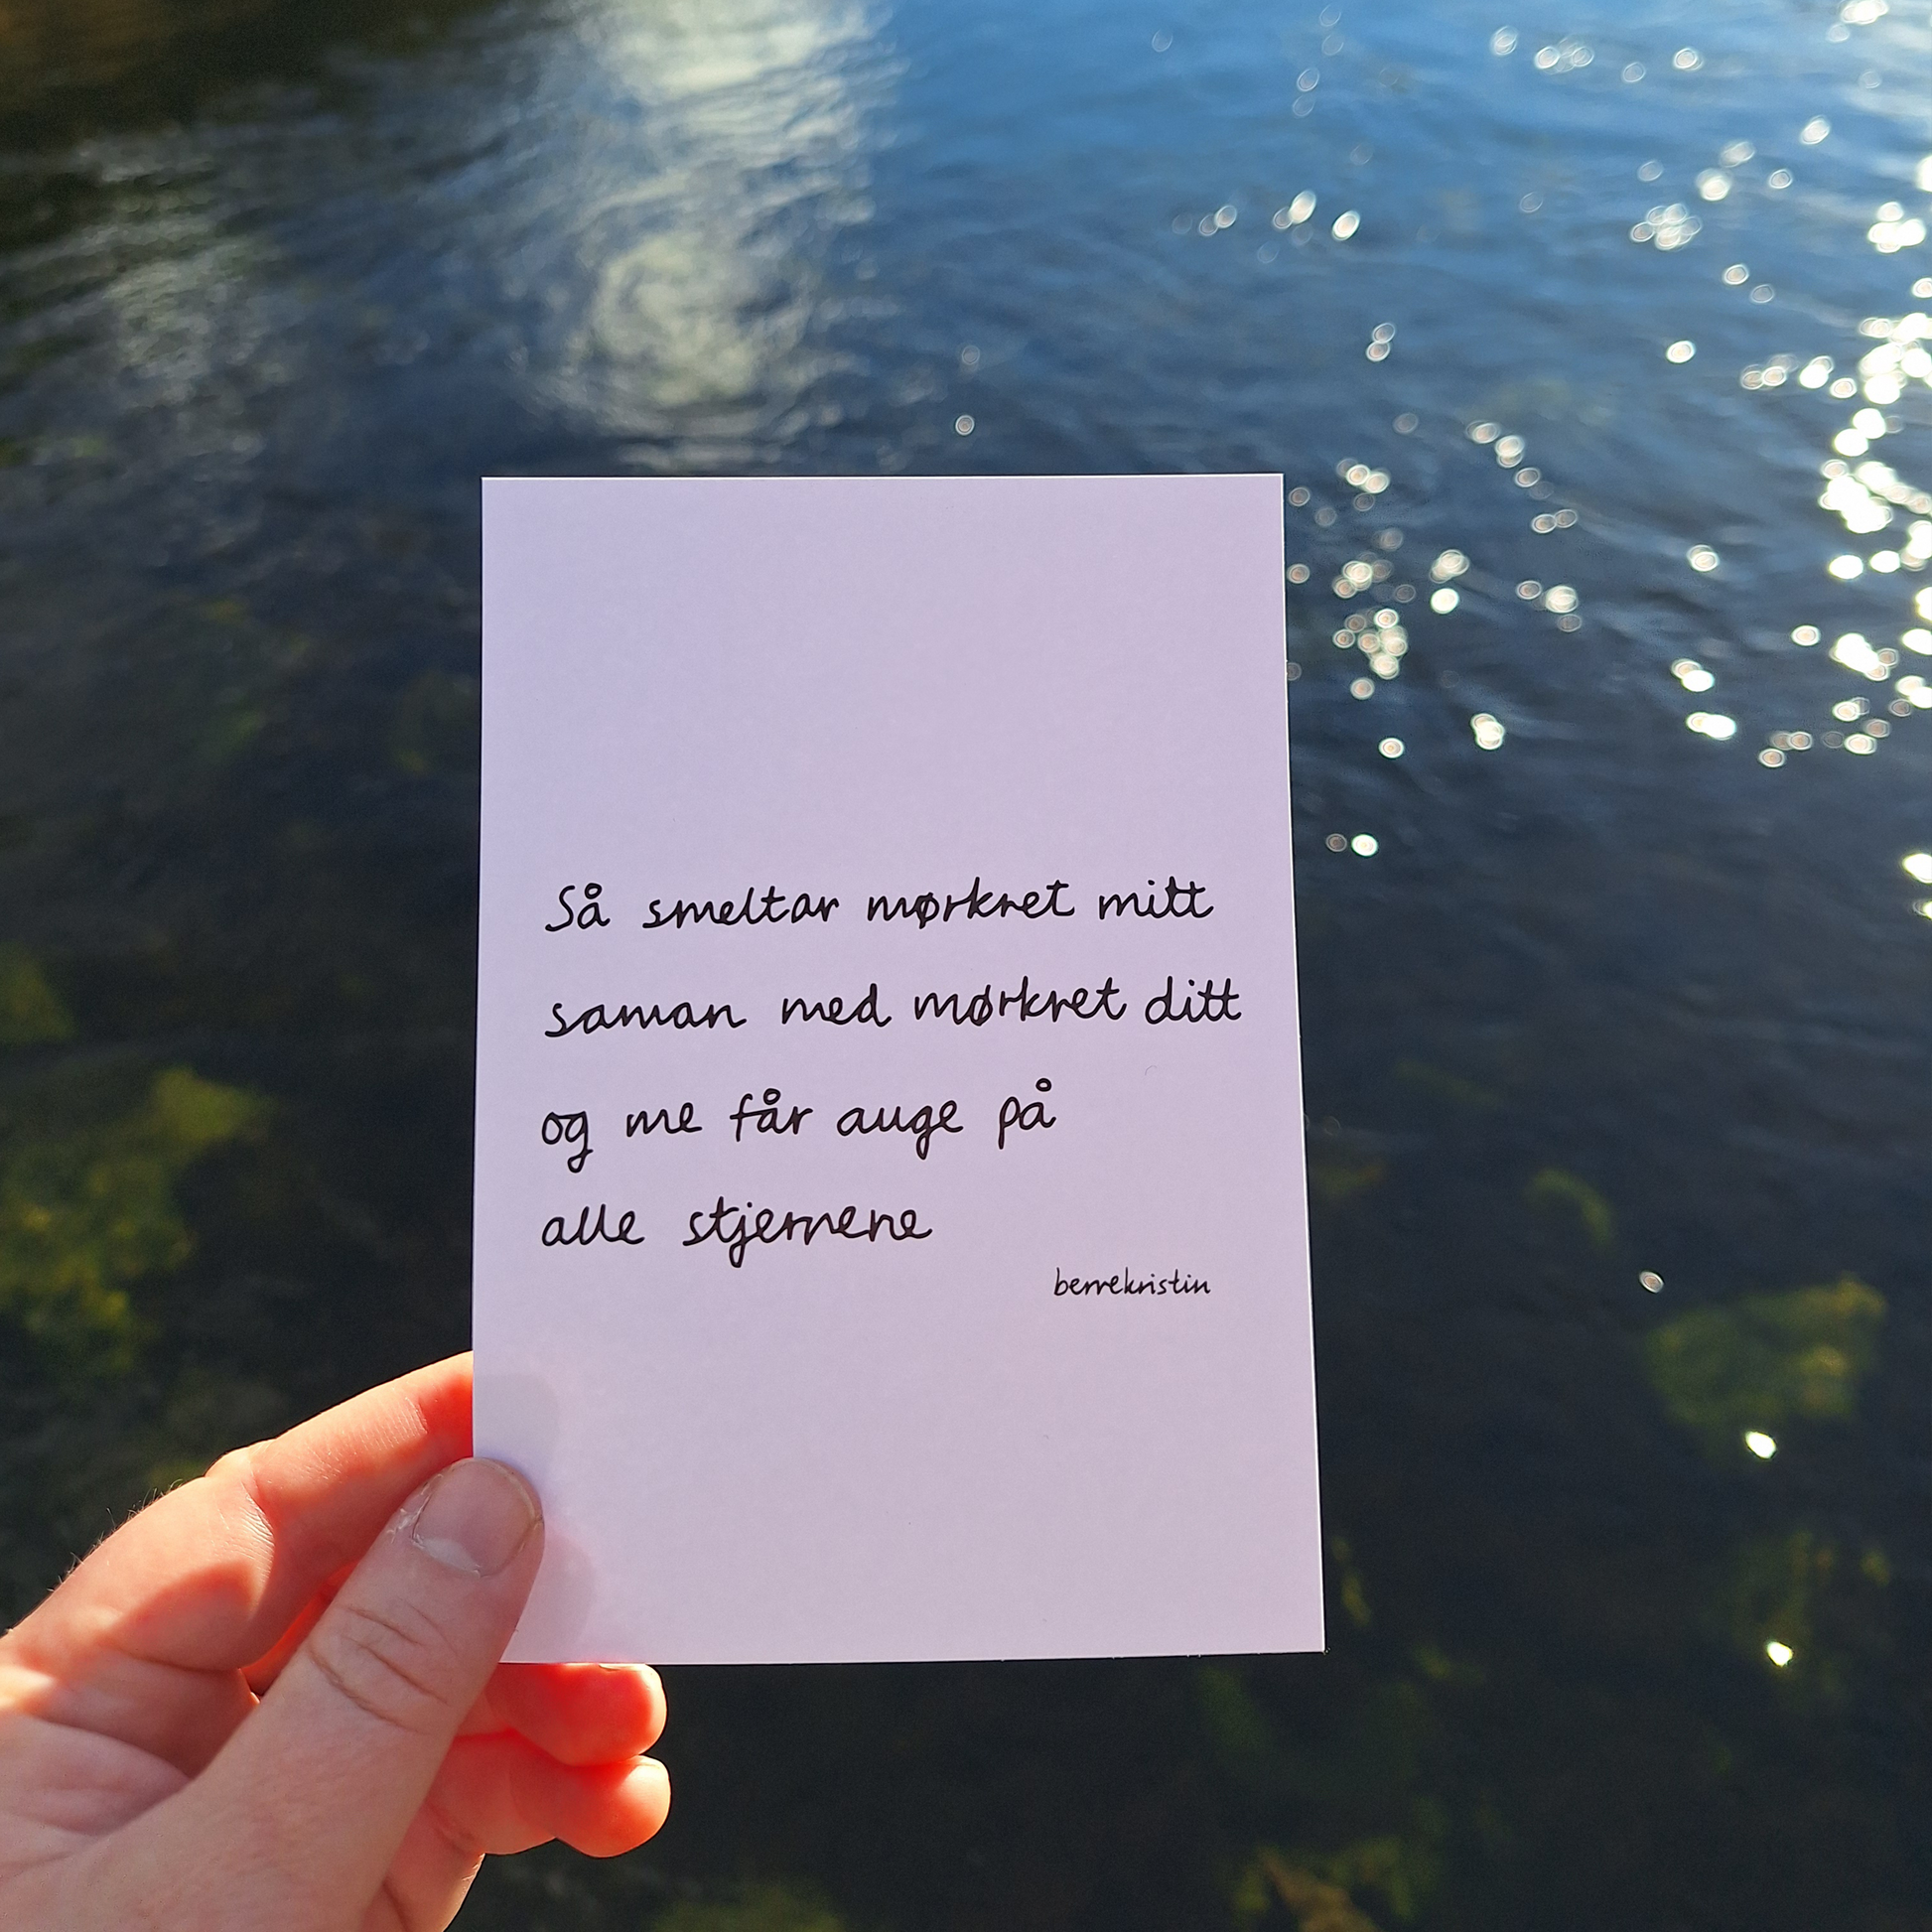 Så smeltar mørkret mitt
saman med mørkret ditt
og me får auge på
alle stjernene
berrekristin